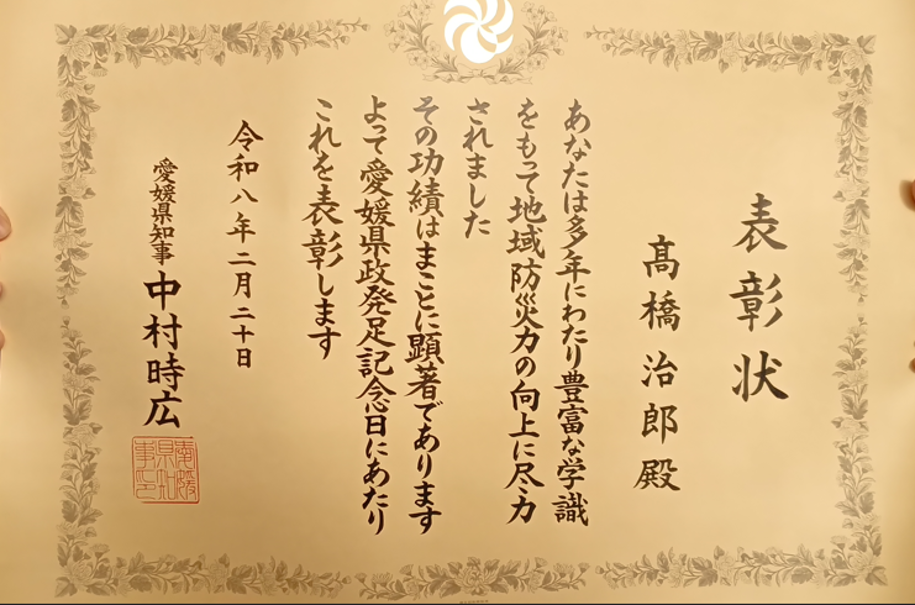 表彰状
髙橋治郎殿
あなたは多年にわたり豊富な学識
をもって地域防災力の向上に尽力
されました
その功績はまことに顕著であります
よって愛媛県政発足記念日にあたり
これを表彰します
令和八年二月二十日
愛媛県知事 中村時広
愛媛県知事印